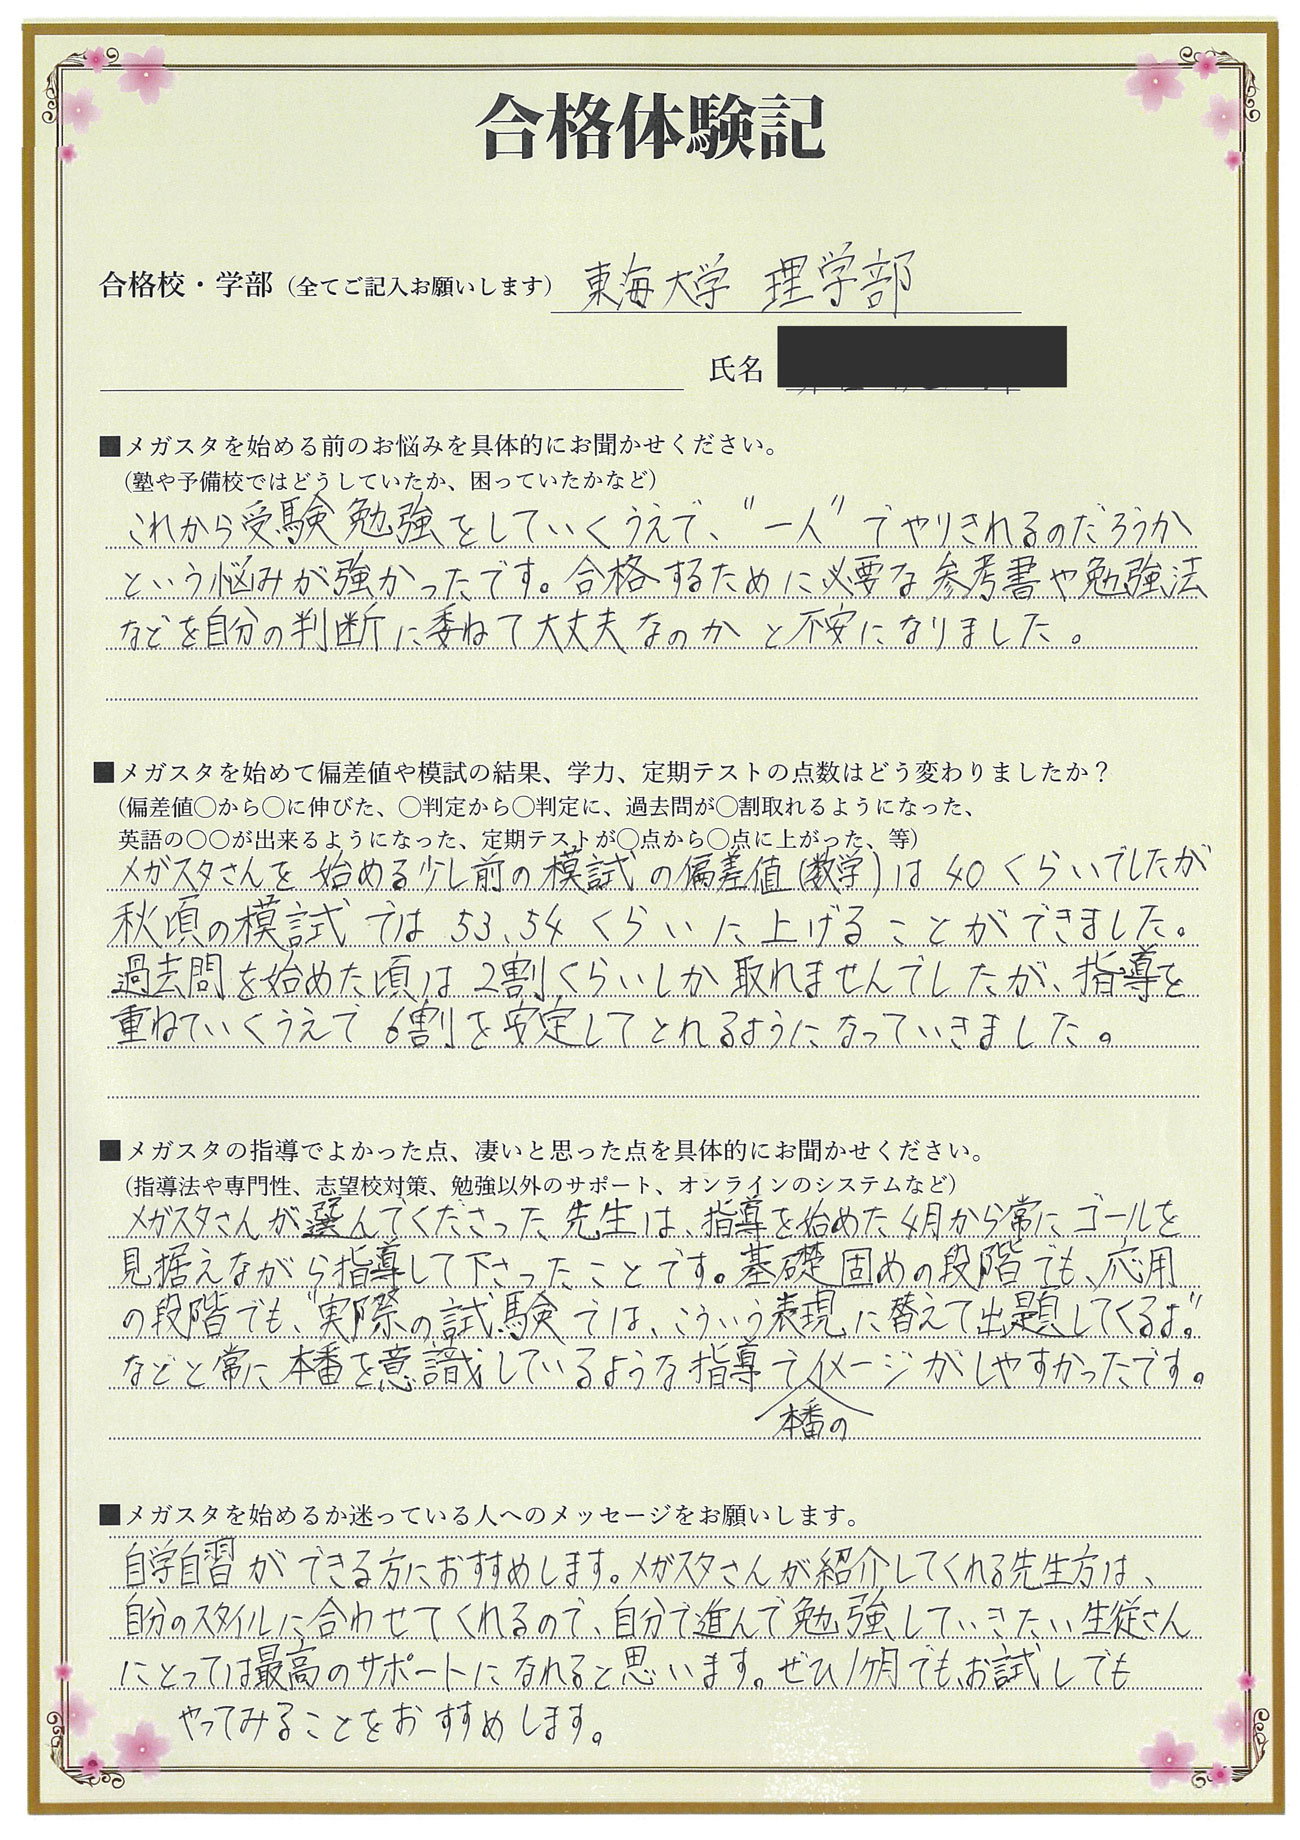 合格体験記
合格校・学部（全てご記入お願いします） 東海大学 理学部
氏名
■メガスタを始める前のお悩みを具体的にお聞かせください。
（塾や予備校ではどうしていたか、困っていたかなど）
これから受験勉強をしていくうえで、"一人"でやりきれるのだろうか
という悩みが強かったです。合格するために必要な参考書や勉強法
などを自分の判断に委ねて大丈夫なのかと不安になりました。
■メガスタを始めて偏差値や模試の結果、学力、定期テストの点数はどう変わりましたか？
（偏差値〇から〇に伸びた、〇判定から〇判定に、過去問が〇割取れるようになった、
英語の〇〇が出来るようになった、定期テストが〇点から〇点に上がった、等）
メガスタさんを始める少し前の模試の偏差値(数学)は40くらいでしたが
秋頃の模試では53、54くらいに上げることができました。
過去問を始めた頃は2割くらいしか取れませんでしたが、指導を
重ねていくうえで6割を安定してとれるようになっていきました。
■メガスタの指導でよかった点、凄いと思った点を具体的にお聞かせください。
（指導法や専門性、志望校対策、勉強以外のサポート、オンラインのシステムなど）
メガスタさんが選んでくださった先生は、指導を始めた4月から常にゴールを
見据えながら指導して下さったことです。基礎固めの段階でも、応用
の段階でも、"実際の試験では、こういう表現に替えて出題してくるよ"
などと常に本番を意識しているような指導でイメージがしやすかったです。
本番の
■メガスタを始めるか迷っている人へのメッセージをお願いします。
自学自習ができる方におすすめします。メガスタさんが紹介してくれる先生方は、
自分のスタイルに合わせてくれるので、自分で進んで勉強していきたい生徒さん
にとっては最高のサポートになれると思います。ぜひ1ヶ月でもお試しでも
やってみることをおすすめします。